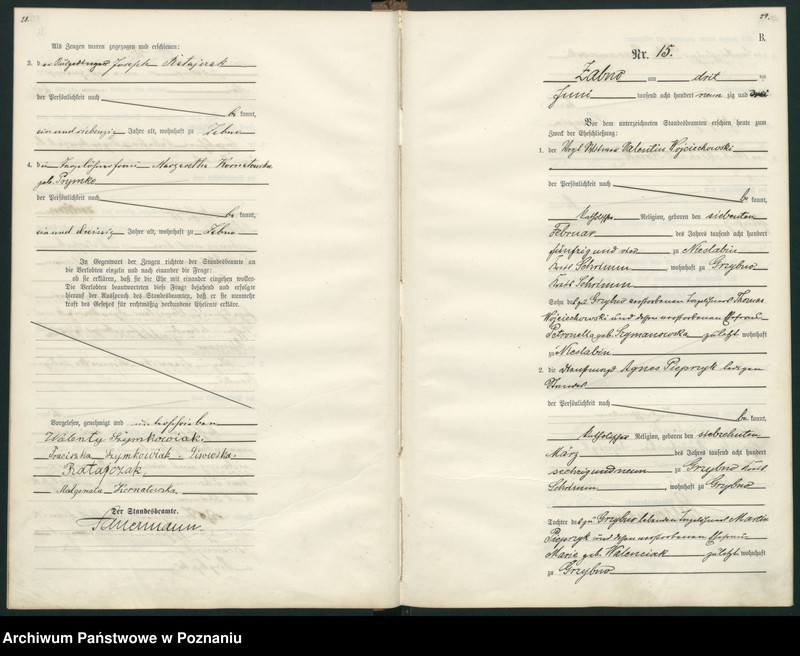 28.
Als Zeugen waren zugezogen und erschienen:
3. der Joseph Ratajczak
der Persönlichkeit nach
be kannt,
ein und siebenzig Jahre alt, wohnhaft zu Zabno
4. die Tagelöhnerfrau Margarethe Kornatowska
geb. Prymko
der Persönlichkeit nach
be kannt,
ein und dreißig Jahre alt, wohnhaft zu Zabno
In Gegenwart der Zeugen richtete der Standesbeamte an
die Verlobten einzeln und nach einander die Frage:
ob sie erklären, daß sie die Ehe mit einander eingehen wollen.
Die Verlobten beantworteten diese Frage bejahend und erfolgte
hierauf der Ausspruch des Standesbeamten, daß er sie nunmehr
kraft des Gesetzes für rechtmäßig verbundene Eheleute erkläre.
Vorgelesen, genehmigt und unterschrieben
Walenty Szymkowiak.
Franciszka Szymkowiak
Ratajczak
Małgorzata Kornatowska
Der Standesbeamte.
29.
B.
Nr. 15.
Zabno am drit en
Juni tausend acht hundert neun zig und drei
Vor dem unterzeichneten Standesbeamten erschien heute zum
Zweck der Eheschließung:
1. der Vogt Wittwer Valentin Wojciechowski
der Persönlichkeit nach
be kannt,
katholischer Religion, geboren den siebenten
Februar des Jahres tausend acht hundert
fünfzig und vier zu Nieslabin
Kreis Schrimm wohnhaft zu Grzybno
Kreis Schrimm
Sohn des zu Grzybno verstorbenen Tagelöhners Thomas
Wojciechowski und dessen verstorbenen Ehefrau
Petronella geb. Szymanowska zuletzt wohnhaft
zu Nieslabin
2. die Dienstmagd Agnes Pieprzyk ledigen
Standes
der Persönlichkeit nach
be kannt,
katholischer Religion, geboren den siebzehnten
März des Jahres tausend acht hundert
sechzig und neun zu Grzybno Kreis
Schrimm wohnhaft zu Grzybno
Tochter des zu Grzybno lebenden Tagelöhners Martin
Pieprzyk und dessen verstorbenen Ehefrau
Marie geb. Walenciak zuletzt wohnhaft
zu Grzybno
Archiwum Państwowe w Poznaniu